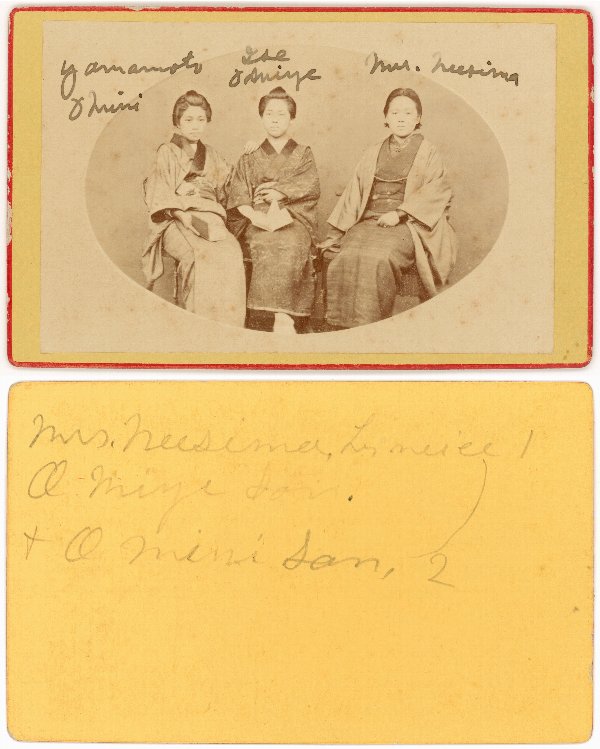 Yamamoto
O Mini
Ise
O Miye
Mrs. Neesima
Mrs. Neesima, neice 1
O Miye San.
+ O Mini San, 2